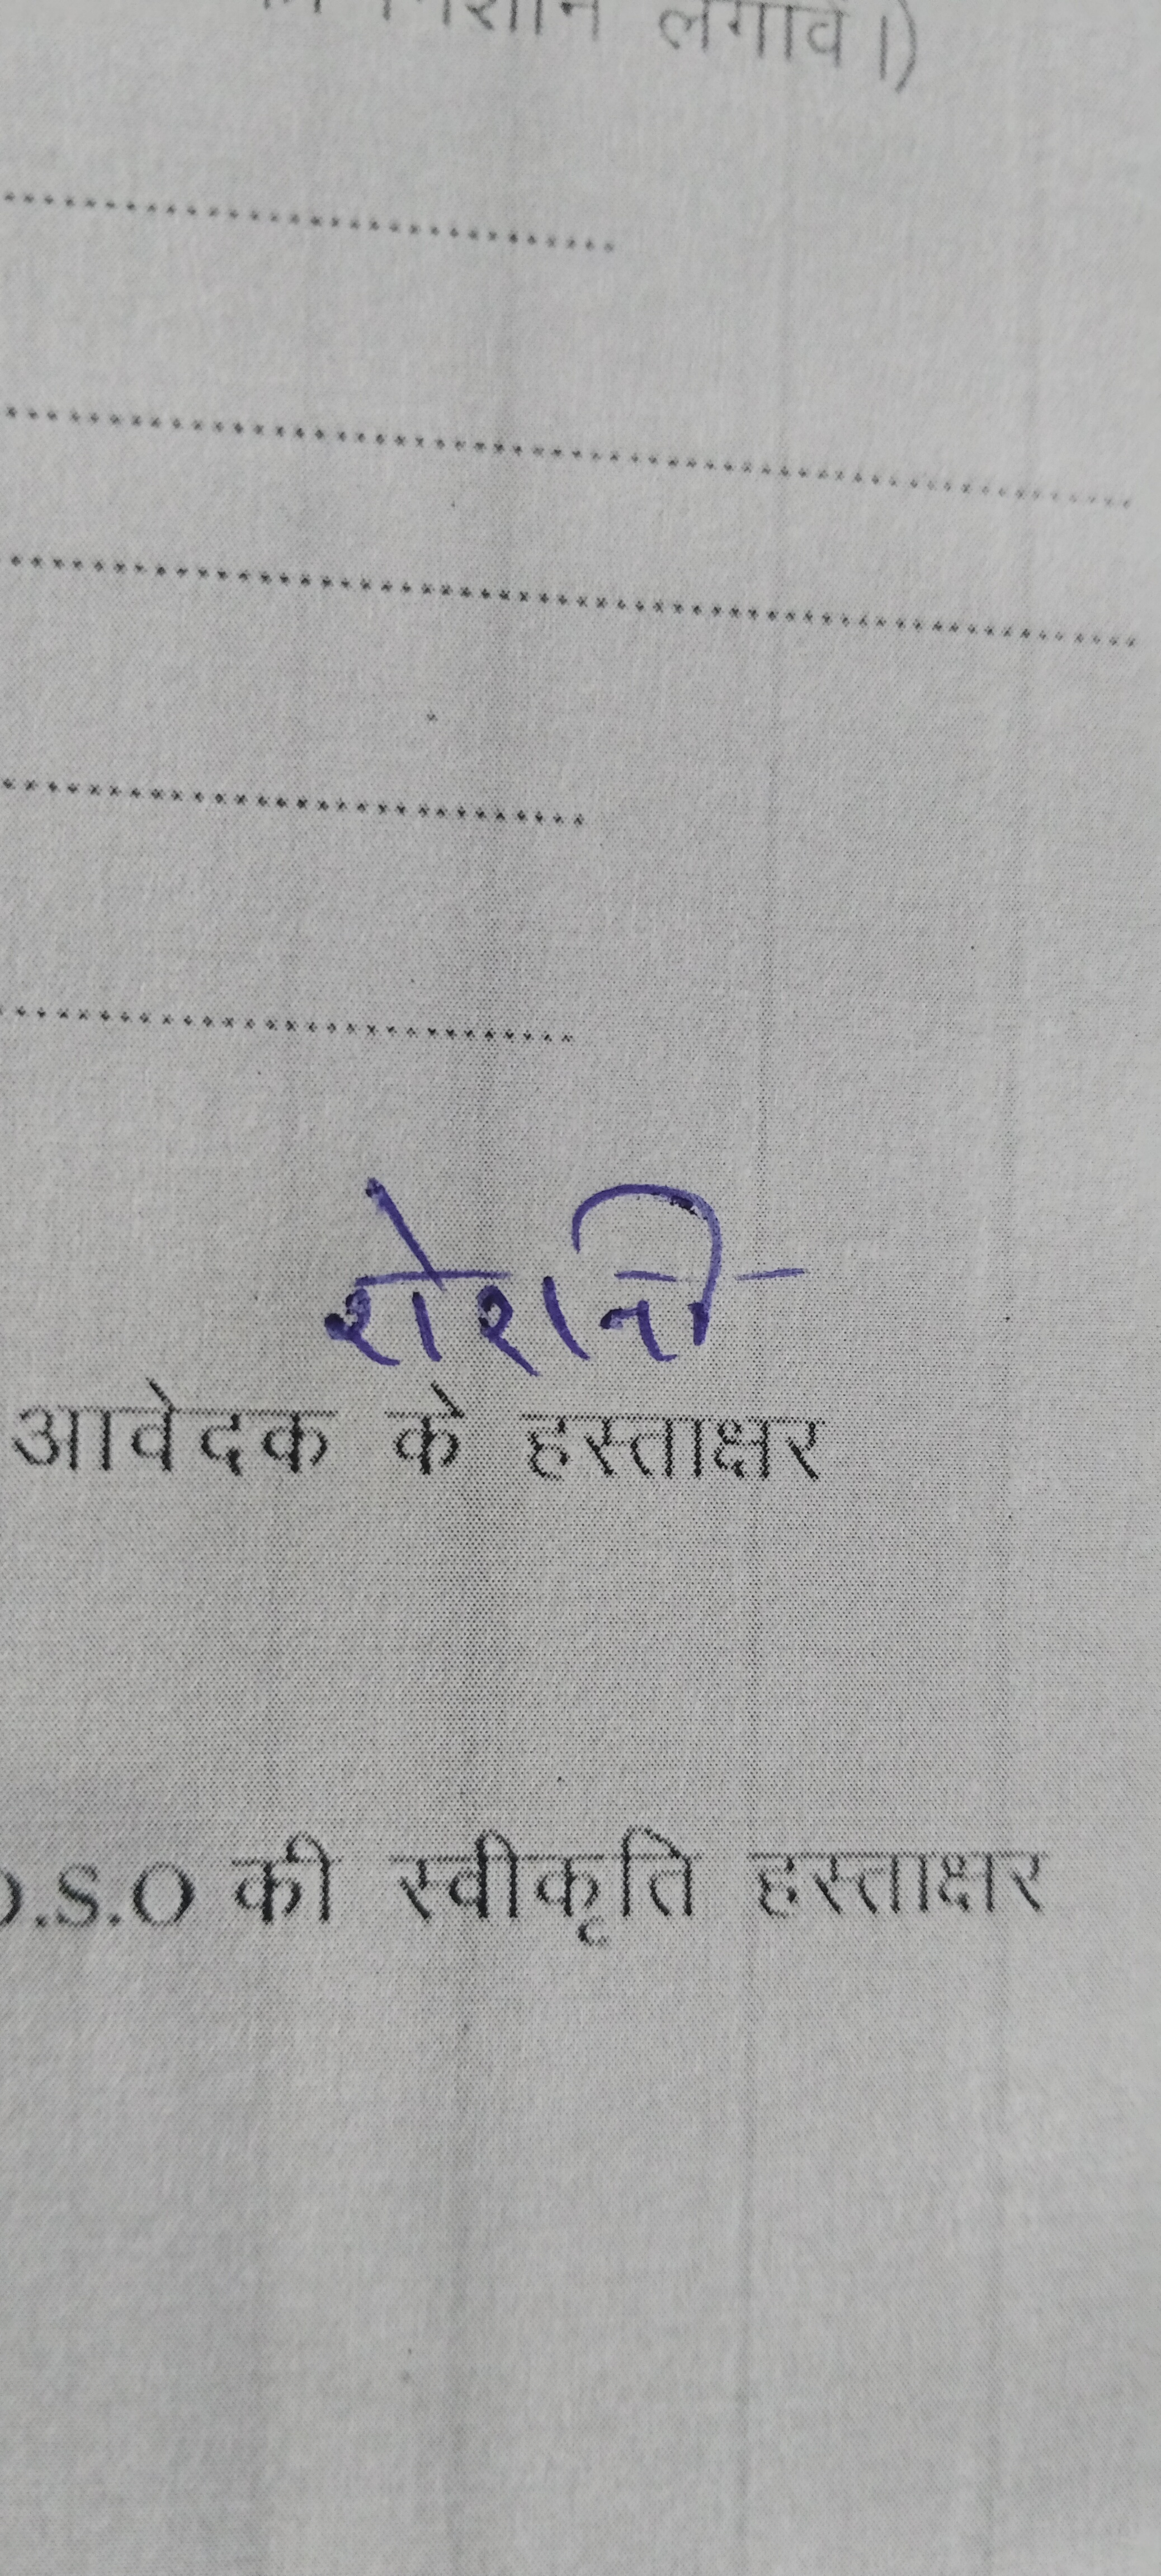 निशान लगावें।)
रोशनी
आवेदक के हस्ताक्षर
.S.O की स्वीकृति हस्ताक्षर